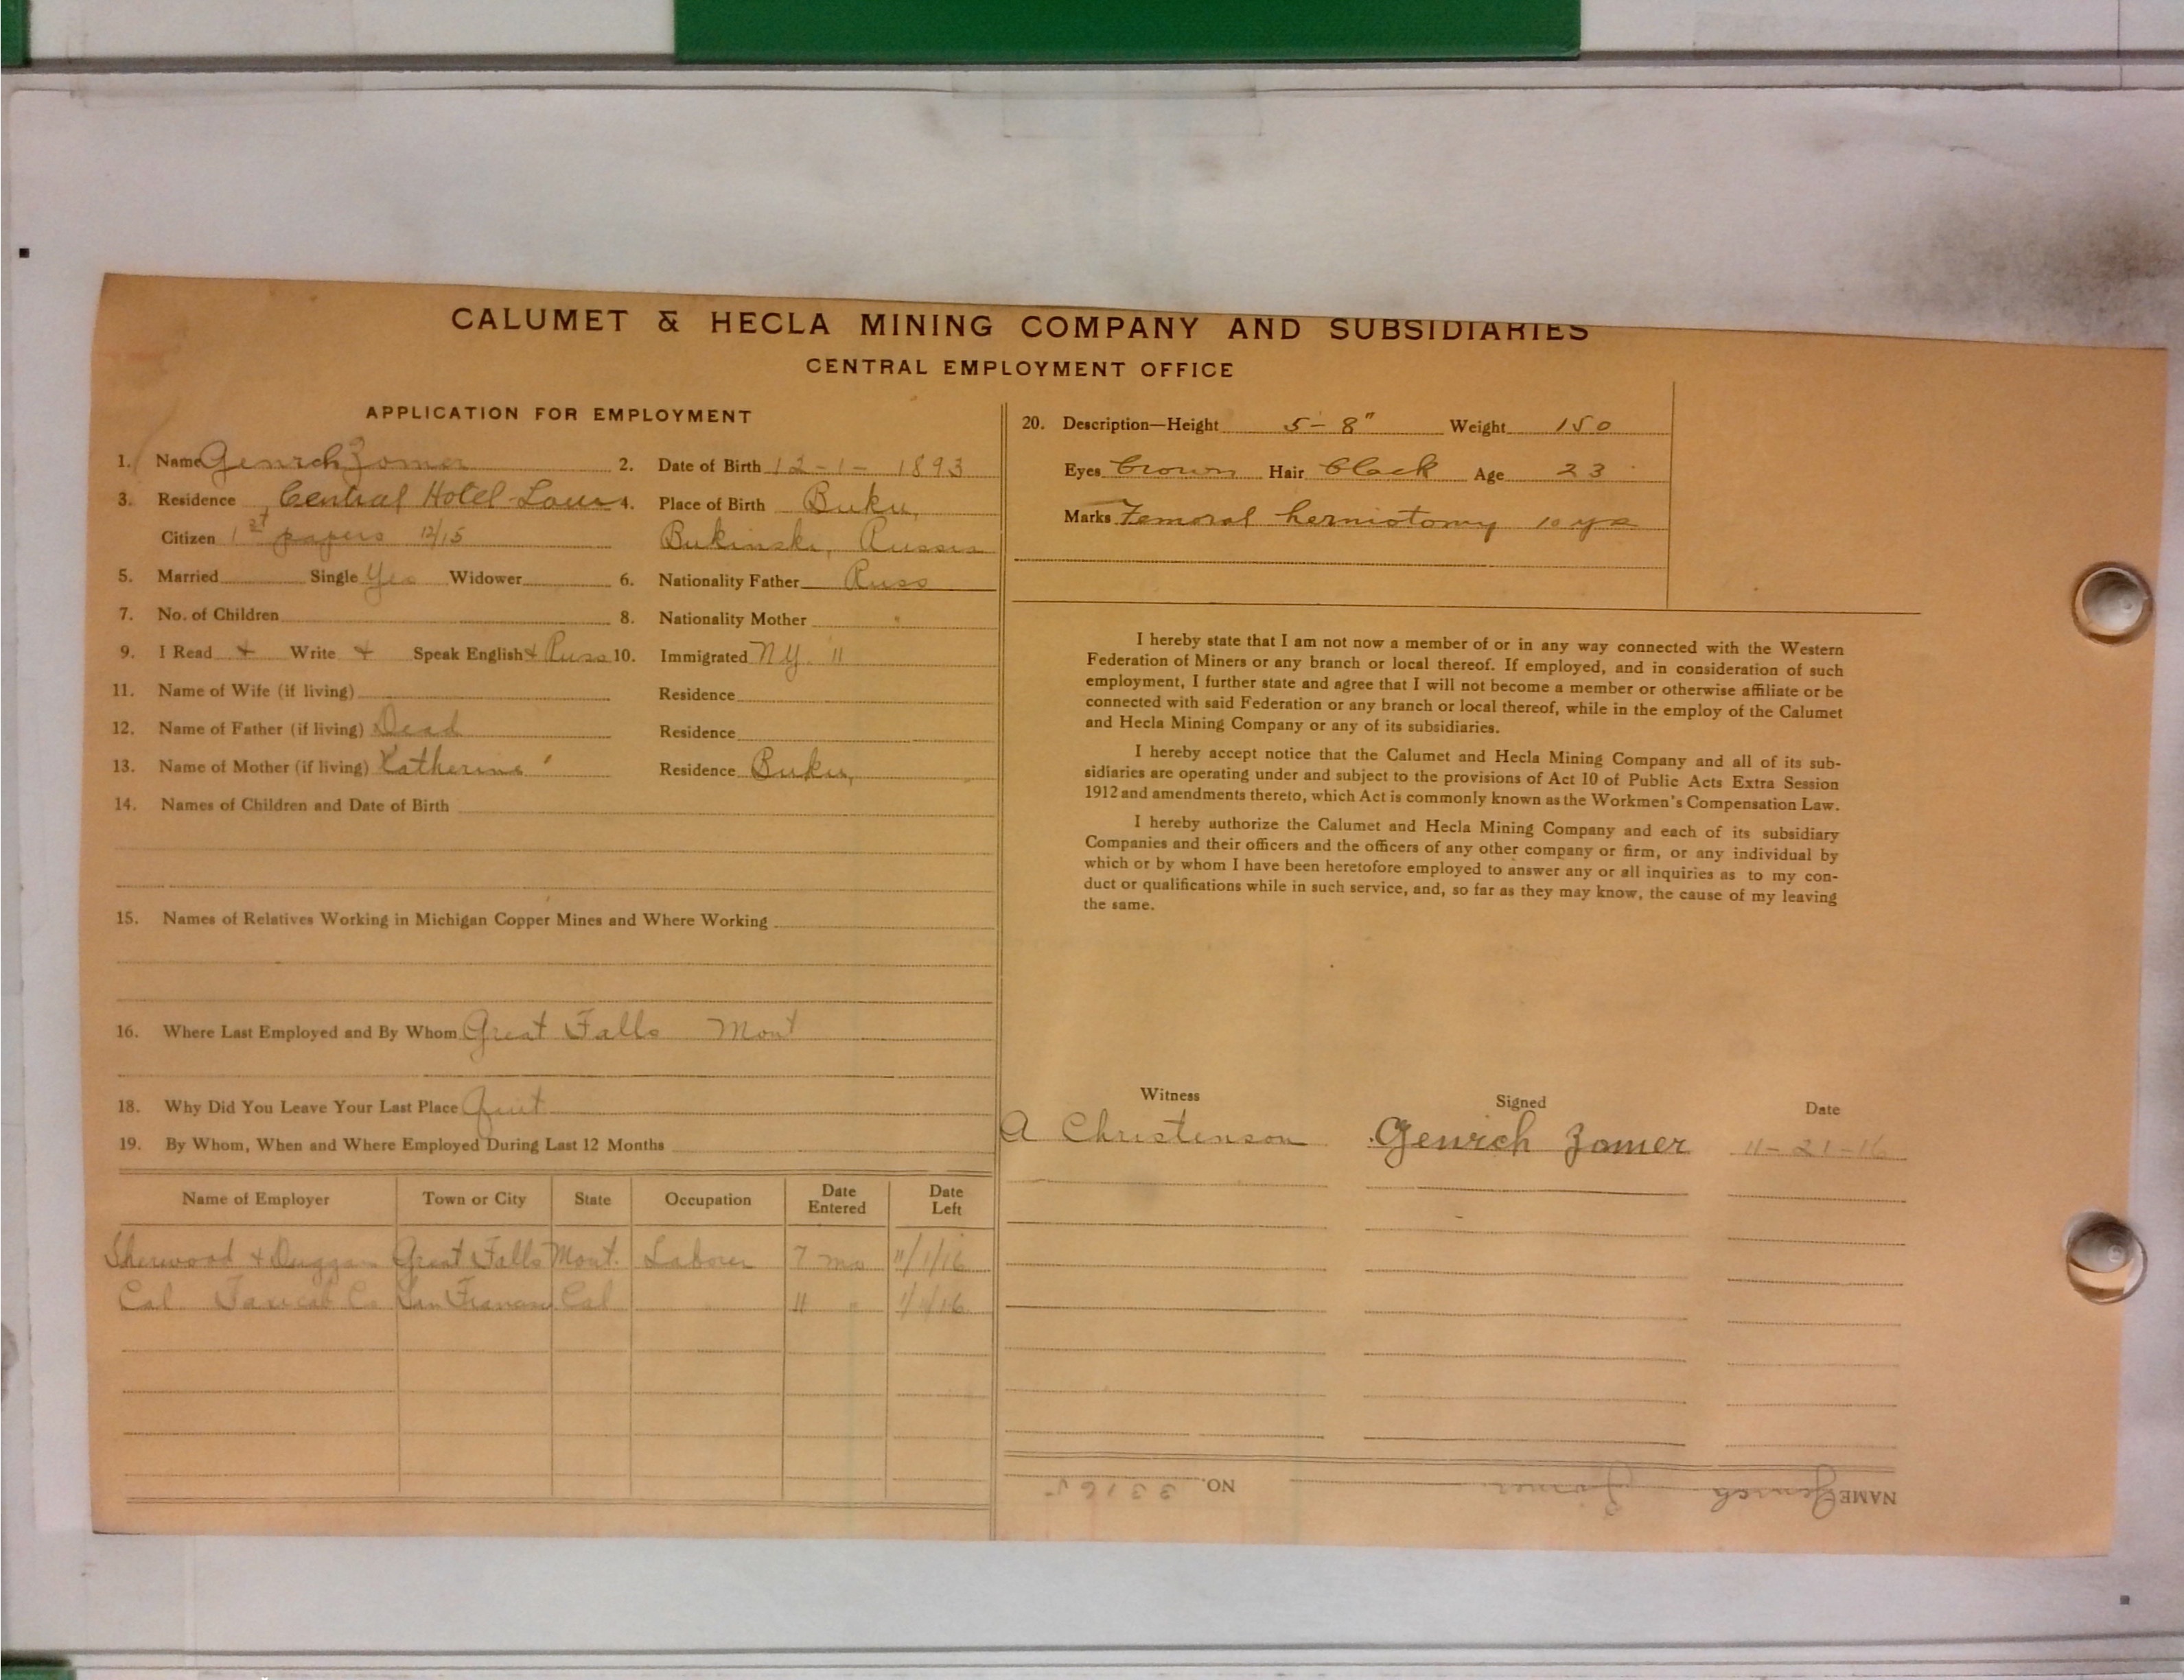 CALUMET & HECLA MINING COMPANY AND SUBSIDIARIES
CENTRAL EMPLOYMENT OFFICE
APPLICATION FOR EMPLOYMENT
1. Name Genrch Zomer 2. Date of Birth 12-1-1893
3. Residence Central Hotel- 4. Place of Birth Buku,
Citizen 1st papers 12/15 Bukinski, Russia
5. Married Single Yes Widower 6. Nationality Father Russ
7. No. of Children 8. Nationality Mother "
9. I Read + Write + Speak English + Russ 10. Immigrated N.Y. 11
11. Name of Wife (if living) Residence
12. Name of Father (if living) Dead Residence
13. Name of Mother (if living) Katherine Residence Buku,
14. Names of Children and Date of Birth
15. Names of Relatives Working in Michigan Copper Mines and Where Working
16. Where Last Employed and By Whom Great Falls Mont
18. Why Did You Leave Your Last Place Quit
19. By Whom, When and Where Employed During Last 12 Months
Name of Employer Town or City State Occupation Date Entered Date Left
Sherwood + Duggan Great Falls Mont. Laborer 7 mo 11/1/16
Cal. Taxicab Co San Francisco Cal " 11 " 1/1/16
20. Description—Height 5-8" Weight 150
Eyes brown Hair black Age 23
Marks Femoral herniotomy 10 yrs
I hereby state that I am not now a member of or in any way connected with the Western
Federation of Miners or any branch or local thereof. If employed, and in consideration of such
employment, I further state and agree that I will not become a member or otherwise affiliate or be
connected with said Federation or any branch or local thereof, while in the employ of the Calumet
and Hecla Mining Company or any of its subsidiaries.
I hereby accept notice that the Calumet and Hecla Mining Company and all of its sub-
sidiaries are operating under and subject to the provisions of Act 10 of Public Acts Extra Session
1912 and amendments thereto, which Act is commonly known as the Workmen's Compensation Law.
I hereby authorize the Calumet and Hecla Mining Company and each of its subsidiary
Companies and their officers and the officers of any other company or firm, or any individual by
which or by whom I have been heretofore employed to answer any or all inquiries as to my con-
duct or qualifications while in such service, and, so far as they may know, the cause of my leaving
the same.
Witness Signed Date
A Christenson Genrch Zomer 11-21-16
NAME Genrch Zomer NO. 33165